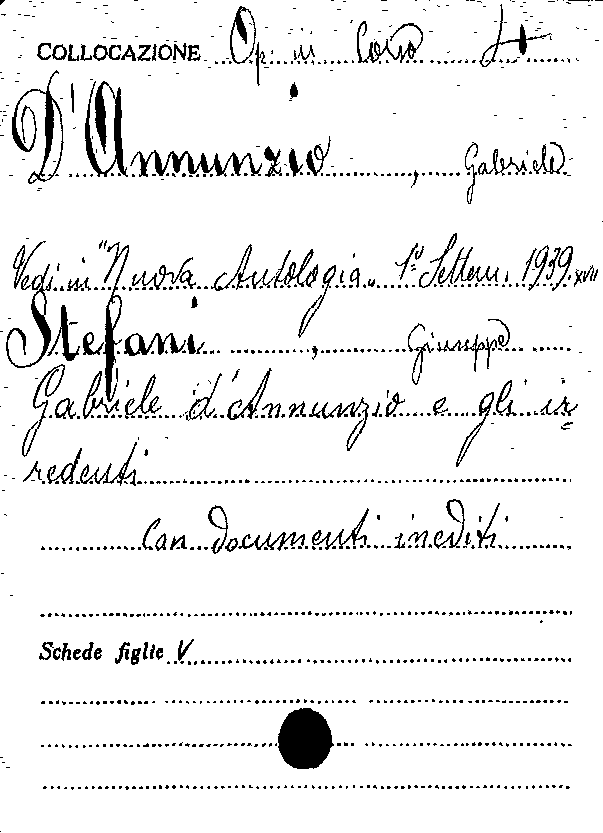 COLLOCAZIONE Op. in Corso
D'Annunzio, Gabriele
Vedi in "Nuova Antologia„ 1° Settem. 1939. XVII
Stefani, Giuppe
Gabriele d'Annunzio e gli ir=
redenti
Con documenti inediti
Schede figlie V